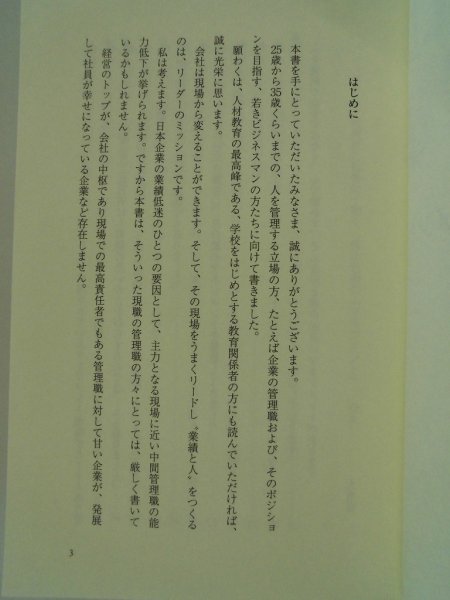 はじめに
本書を手にとっていただいたみなさま、誠にありがとうございます。
25歳から35歳くらいまでの、人を管理する立場の方、たとえば企業の管理職および、そのポジショ
ンを目指す、若きビジネスマンの方たちに向けて書きました。
願わくは、人材教育の最高峰である、学校をはじめとする教育関係者の方にも読んでいただければ、
誠に光栄に思います。
会社は現場から変えることができます。そして、その現場をうまくリードし〝業績と人〟をつくる
のは、リーダーのミッションです。
私は考えます。日本企業の業績低迷のひとつの要因として、主力となる現場に近い中間管理職の能
力低下が挙げられます。ですから本書は、そういった現職の管理職の方々にとっては、厳しく書いて
いるかもしれません。
経営のトップが、会社の中枢であり現場での最高責任者でもある管理職に対して甘い企業が、発展
して社員が幸せになっている企業など存在しません。
3